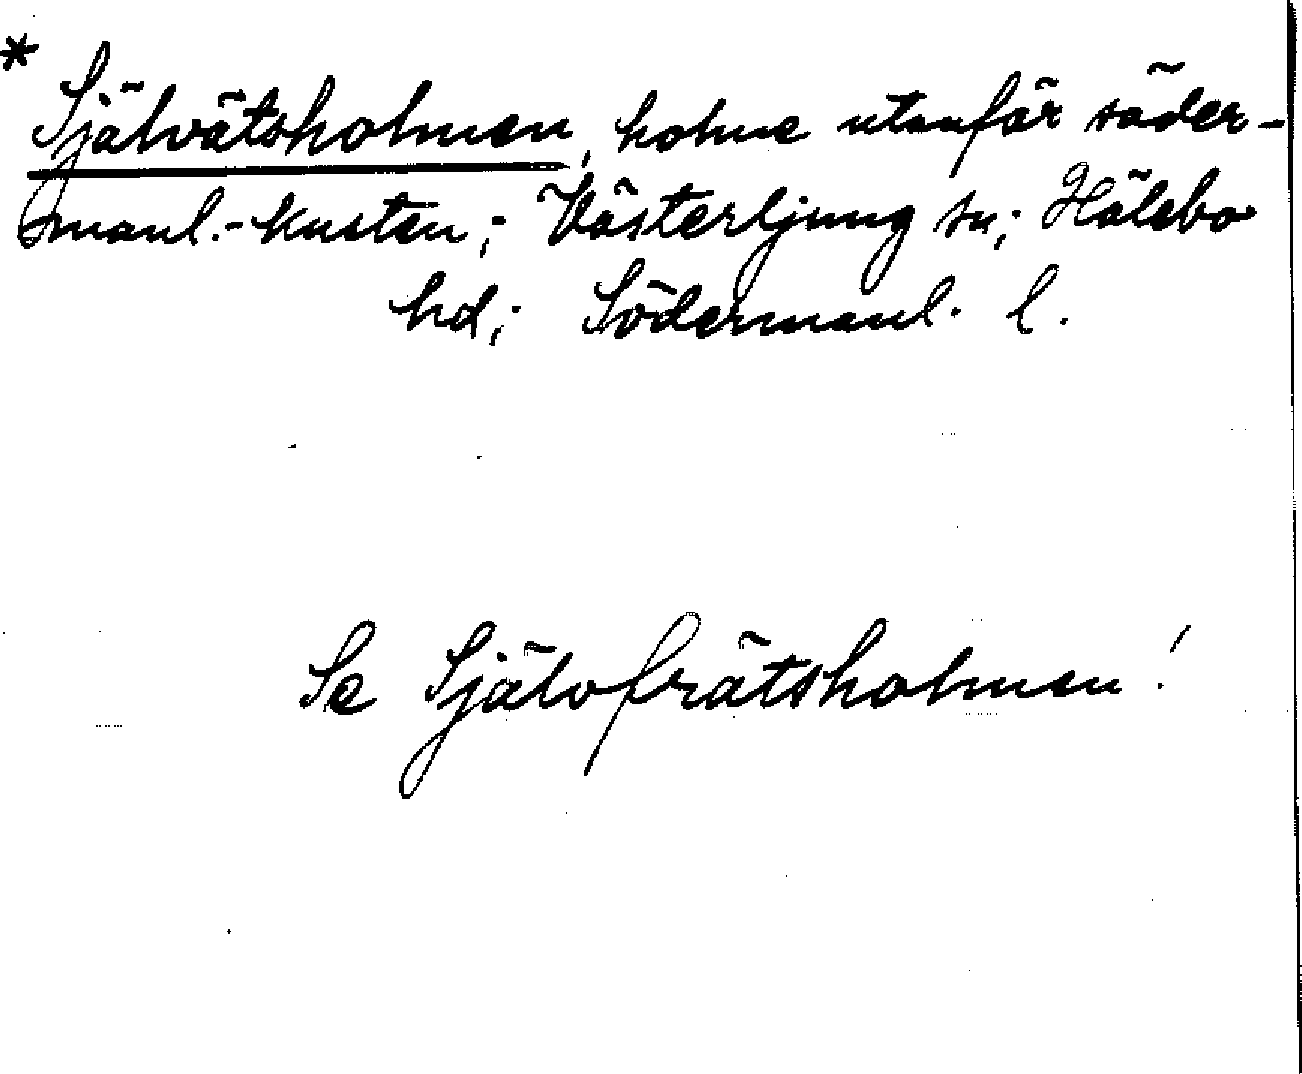 * Självätsholmen, holme utanför söder-
manl.-kusten; Västerljung sn; Hölebo
hd; Södermanl. l.
Se Självfrätsholmen!